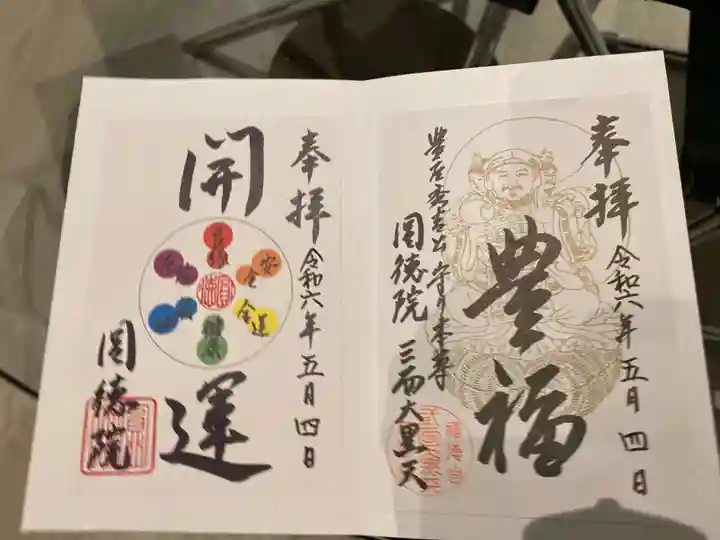 奉拝
令和六年五月四日
豊福
豊臣秀吉公守り本尊
圓徳院 三面大黒天
奉拝
令和六年五月四日
開運
安全
金運
圓徳院